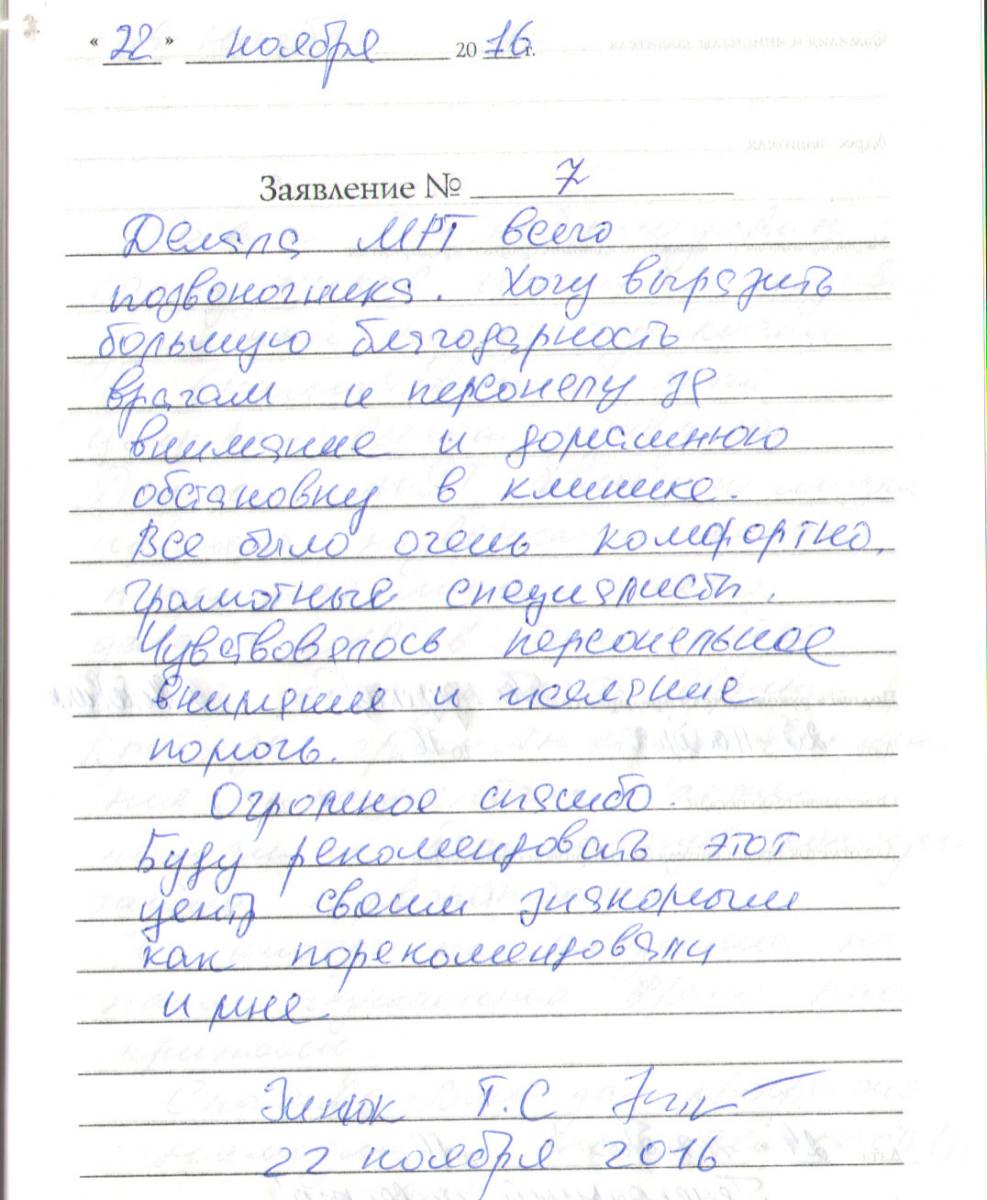 «22» ноября 2016 г.
Заявление № 7
Делала МРТ всего
позвоночника. Хочу выразить
большую благодарность
врачам и персоналу за
внимание и домашнюю
обстановку в клинике.
Все было очень комфортно,
грамотные специалисты.
Чувствовалось персональное
внимание и желание
помочь.
Огромное спасибо.
Буду рекомендовать этот
центр своим знакомым
как порекомендовали
и мне
Зинюк Т.С
22 ноября 2016